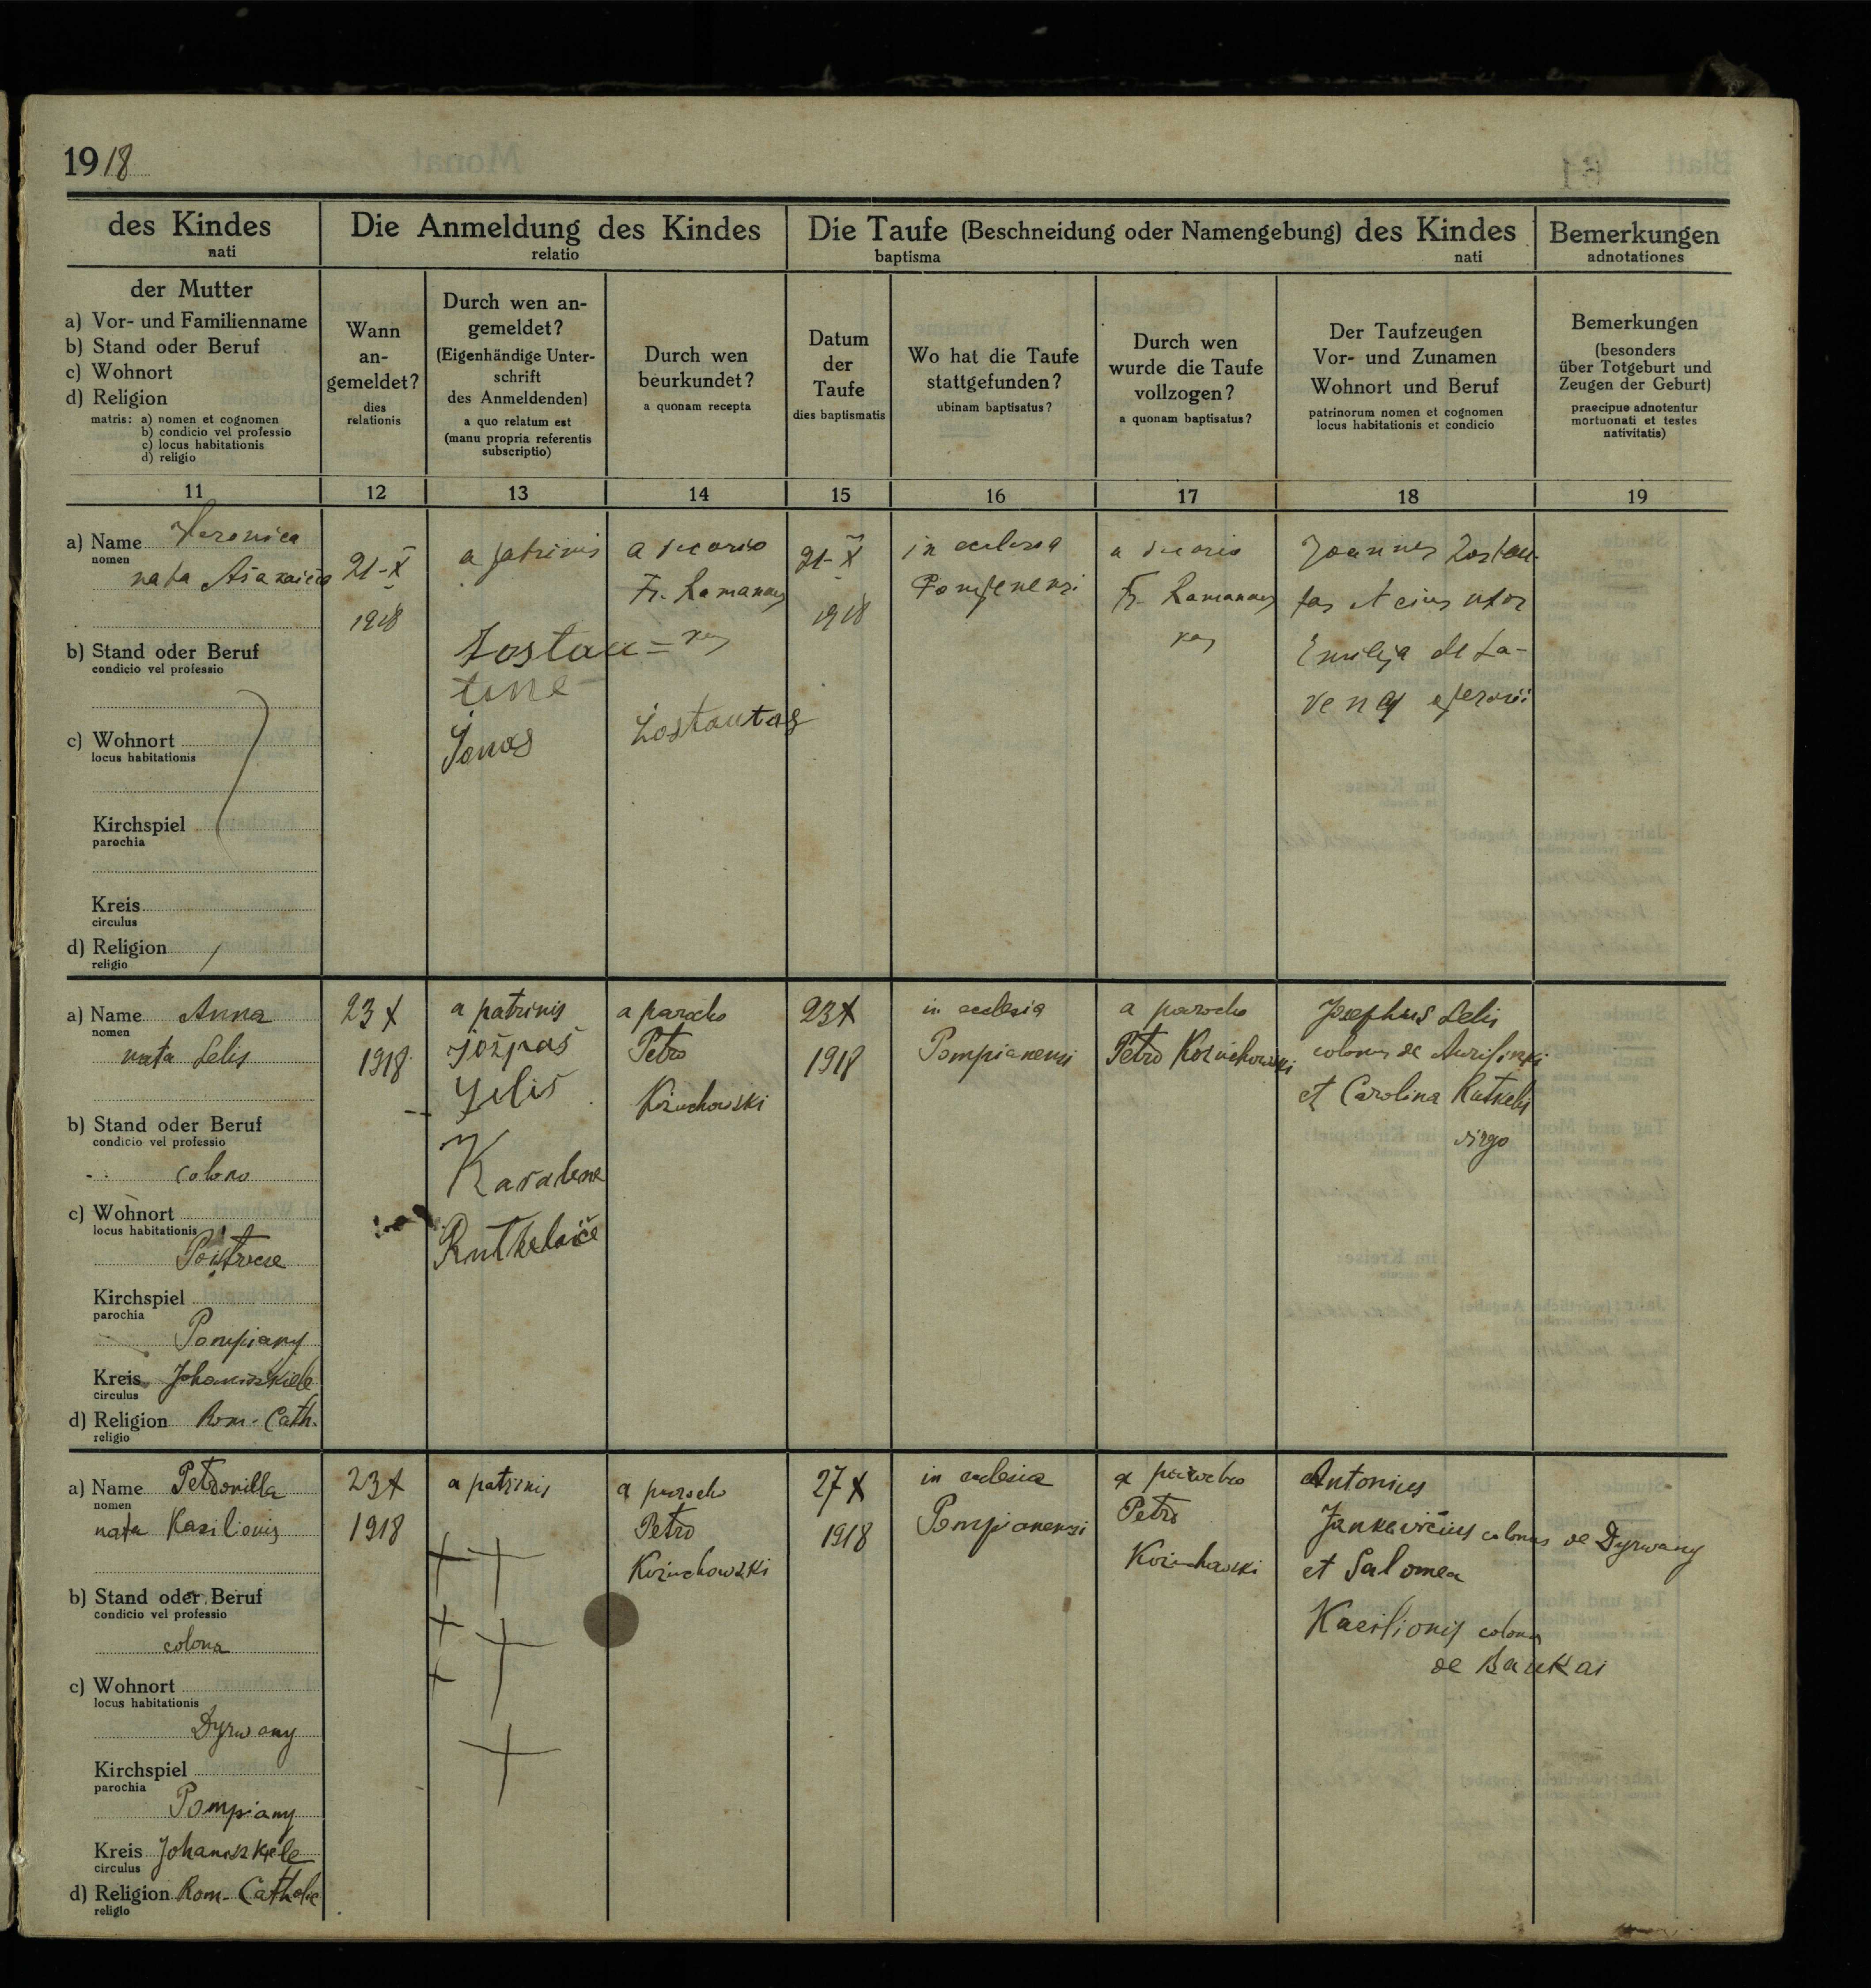 1918
des Kindes
nati
Die Anmeldung des Kindes
relatio
Die Taufe (Beschneidung oder Namengebung) des Kindes
baptisma nati
Bemerkungen
adnotationes
der Mutter
a) Vor- und Familienname
b) Stand oder Beruf
c) Wohnort
d) Religion
matris: a) nomen et cognomen
b) condicio vel professio
c) locus habitationis
d) religio
Wann
an-
gemeldet?
dies
relationis
Durch wen an-
gemeldet?
(Eigenhändige Unter-
schrift
des Anmeldenden)
a quo relatum est
(manu propria referentis
subscriptio)
Durch wen
beurkundet?
a quonam recepta
Datum
der
Taufe
dies baptismatis
Wo hat die Taufe
stattgefunden?
ubinam baptisatus?
Durch wen
wurde die Taufe
vollzogen?
a quonam baptisatus?
Der Taufzeugen
Vor- und Zunamen
Wohnort und Beruf
patrinorum nomen et cognomen
locus habitationis et condicio
Bemerkungen
(besonders
über Totgeburt und
Zeugen der Geburt)
praecipue adnotentur
mortuonati et testes
nativitatis)
11 12 13 14 15 16 17 18 19
a) Name Veronica
nomen
nata
b) Stand oder Beruf
condicio vel professio
c) Wohnort
locus habitationis
Kirchspiel
parochia
Kreis
circulus
d) Religion
religio
21-X
1918
a patrinis
Jonas Žostautas
Fr. Ramanaus
21-X
1918
in ecclesia
Pompenensi
Fr. Ramanaus
Joannes Zostau-
tas et eius uxor
Emilija de La-
a) Name Anna
nomen
nata Lelis
b) Stand oder Beruf
condicio vel professio
colono
c) Wohnort
locus habitationis
Poistrocie
Kirchspiel
parochia
Pompiany
Kreis Johaniszkiele
circulus
d) Religion Rom.-Cath.
religio
23 X
1918
a patrinis
Karalene
a parocho
Petro
Kożuchowski
23 X
1918
in ecclesia
Pompianensi
a parocho
Petro Kożuchowski
Josephus Lelis
colonus de
et Carolina Rutkelis
virgo
a) Name Petronilla
nomen
nata Kasilionis
b) Stand oder Beruf
condicio vel professio
colona
c) Wohnort
locus habitationis
Dyrwany
Kirchspiel
parochia
Pompiany
Kreis Johaniszkiele
circulus
d) Religion Rom-Catholic
religio
23 X
1918
a patrinis
a parocho
Petro
Kożuchowski
27 X
1918
in ecclesia
Pompianensi
a parocho
Petro
Kożuchowski
Antonius
Jankevičius colonus de Dyrwany
et Salomea
Kasilionis colona
de Baukai